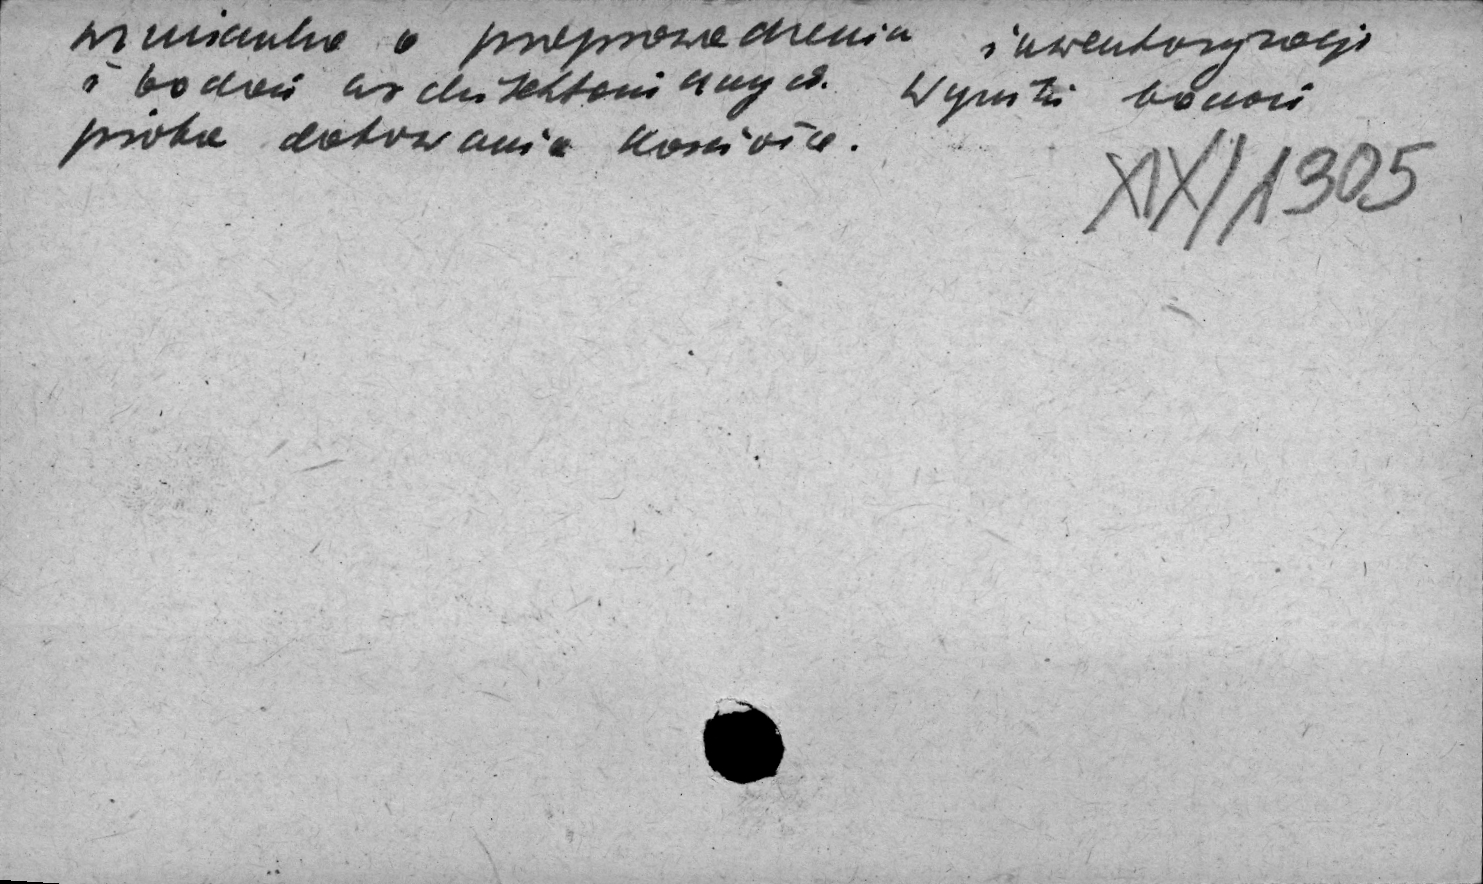 wzmianka o przeprowadzeniu inwentaryzacji
i badań architektonicznych. Wyniki badań
próba datowania kościoła.
XIX/1305